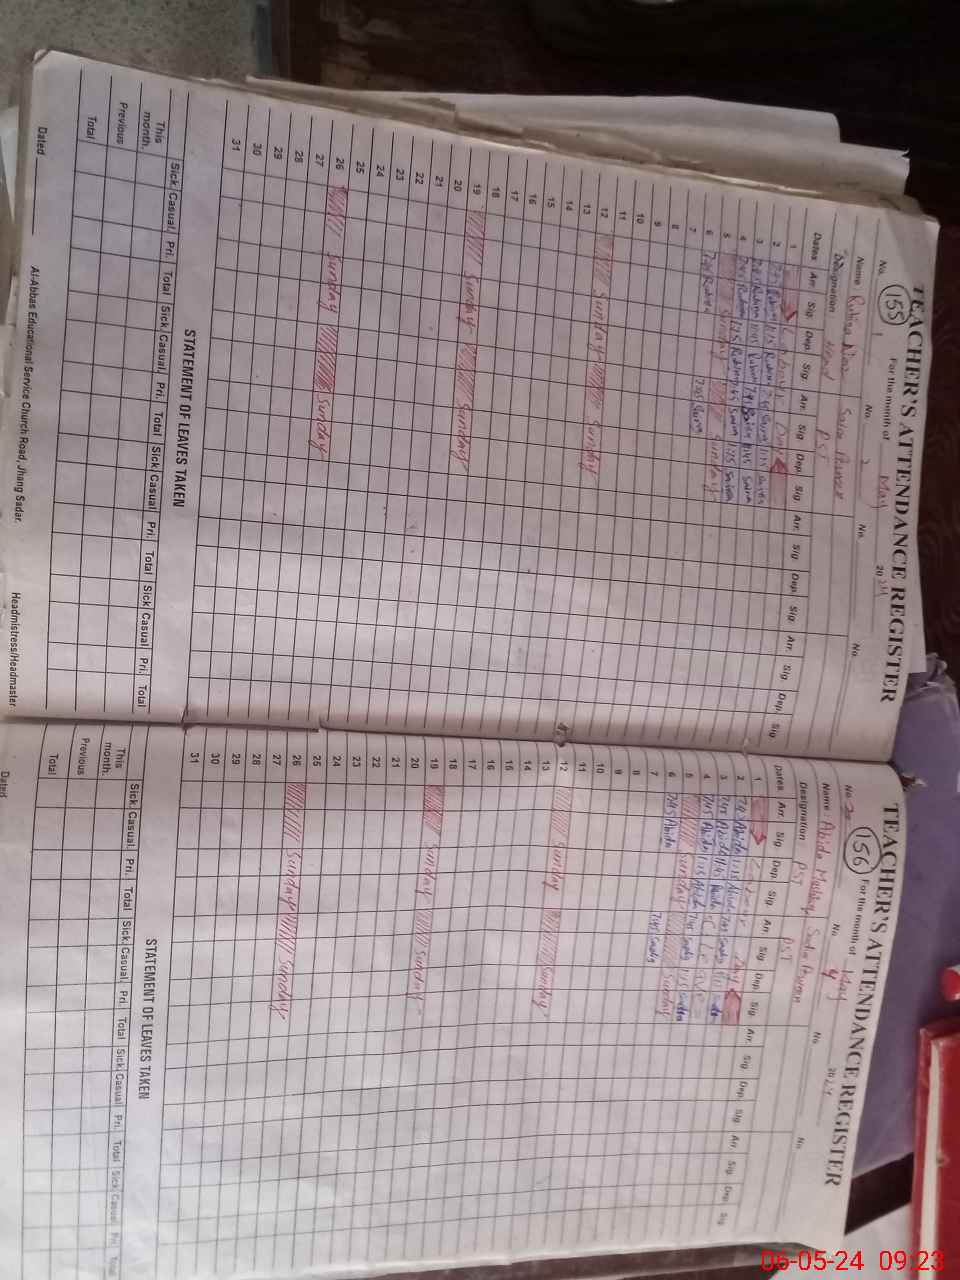 TEACHER'S ATTENDANCE REGISTER
155
For the month of May 2024
No. 1 No. 2 No. No.
Name Rubina Saira
Designation Head PST
Dates Arr. Sig Dep. Sig. Arr. Sig Dep. Sig. Arr. Sig. Dep. Sig. Arr. Sig. Dep. Sig
1 Labour Day
2 7:45 Rubina 1:15 Rubina 7:45 Saira 1:15 Saira
3 7:45 Rubina 11:45 Rubina 7:45 Saira 11:45 Saira
4 7:45 Rubina 1:15 Rubina 7:45 Saira 1:15 Saira
5 Sunday Sunday
6 7:45 Rubina 7:45 Saira
7
8
9
10
11
12 Sunday Sunday
13
14
15
16
17
18
19 Sunday Sunday
20
21
22
23
24
25
26 Sunday Sunday
27
28
29
30
31
STATEMENT OF LEAVES TAKEN
Sick Casual Pri. Total Sick Casual Pri. Total Sick Casual Pri. Total Sick Casual Pri. Total
This month.
Previous
Total
Dated
Al-Abbas Educational Service Church Road, Jhang Sadar.
Headmistress/Headmaster
TEACHER'S ATTENDANCE REGISTER
156
For the month of May 2024
No. No. 4 No. No.
Name Abida Sadia
Designation PST PST
Dates Arr. Sig. Dep. Sig. Arr. Sig Dep. Sig. Arr. Sig. Dep. Sig. Arr. Sig. Dep. Sig
1 Labour Day
2 7:45 Abida 1:15 Abida 7:45 Sadia 1:15 Sadia
3 7:45 Abida 11:45 Abida C Leave
4 7:45 Abida 1:15 Abida 7:45 Sadia 1:15 Sadia
5 Sunday Sunday
6 7:45 Abida 7:45 Sadia
7
8
9
10
11
12 Sunday Sunday
13
14
15
16
17
18
19 Sunday Sunday
20
21
22
23
24
25
26 Sunday Sunday
27
28
29
30
31
STATEMENT OF LEAVES TAKEN
Sick Casual Pri. Total Sick Casual Pri. Total Sick Casual Pri. Total Sick Casual Pri. Total
This month.
Previous
Total
Dated
06-05-24 09:23